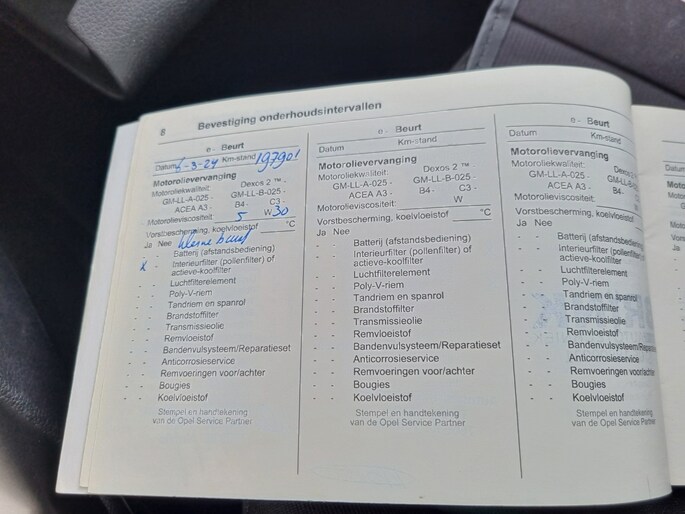 8 Bevestiging onderhoudsintervallen
e - Beurt
Datum 6-3-24 Km-stand 197901
Motorolievervanging
Motoroliekwaliteit: Dexos 2 ™ -
GM-LL-A-025 - GM-LL-B-025 -
ACEA A3 - B4- C3 -
Motorolieviscositeit: 5 W 30
Vorstbescherming, koelvloeistof °C
Ja Nee kleine beurt
- - Batterij (afstandsbediening)
X - Interieurfilter (pollenfilter) of
actieve-koolfilter
- - Luchtfilterelement
- - Poly-V-riem
- - Tandriem en spanrol
- - Brandstoffilter
- - Transmissieolie
- - Remvloeistof
- - Bandenvulsysteem/Reparatieset
- - Anticorrosieservice
- - Remvoeringen voor/achter
- - Bougies
- - Koelvloeistof
Stempel en handtekening
van de Opel Service Partner
e - Beurt
Datum Km-stand
Motorolievervanging
Motoroliekwaliteit: Dexos 2 ™ -
GM-LL-A-025 - GM-LL-B-025 -
ACEA A3 - B4- C3 -
Motorolieviscositeit: W
Vorstbescherming, koelvloeistof °C
Ja Nee
- - Batterij (afstandsbediening)
- - Interieurfilter (pollenfilter) of
actieve-koolfilter
- - Luchtfilterelement
- - Poly-V-riem
- - Tandriem en spanrol
- - Brandstoffilter
- - Transmissieolie
- - Remvloeistof
- - Bandenvulsysteem/Reparatieset
- - Anticorrosieservice
- - Remvoeringen voor/achter
- - Bougies
- - Koelvloeistof
Stempel en handtekening
van de Opel Service Partner
e - Beurt
Datum Km-stand
Motorolievervanging
Motoroliekwaliteit:
GM-LL-A-025 -
ACEA A3 - B4-
Motorolieviscositeit:
Vorstbescherming, koelvloeistof
Ja Nee
- - Batterij
- - Interieurfilter (pollenfilter) of
actieve-koolfilter
- - Luchtfilterelement
- - Poly-V-riem
- - Tandriem en spanrol
- - Brandstoffilter
- - Transmissieolie
- - Remvloeistof
- - Bandenvulsysteem/Repara
- - Anticorrosieservice
- - Remvoeringen voor/achter
- - Bougies
- - Koelvloeistof
Stempel en handtekening
van de Opel Service Partner